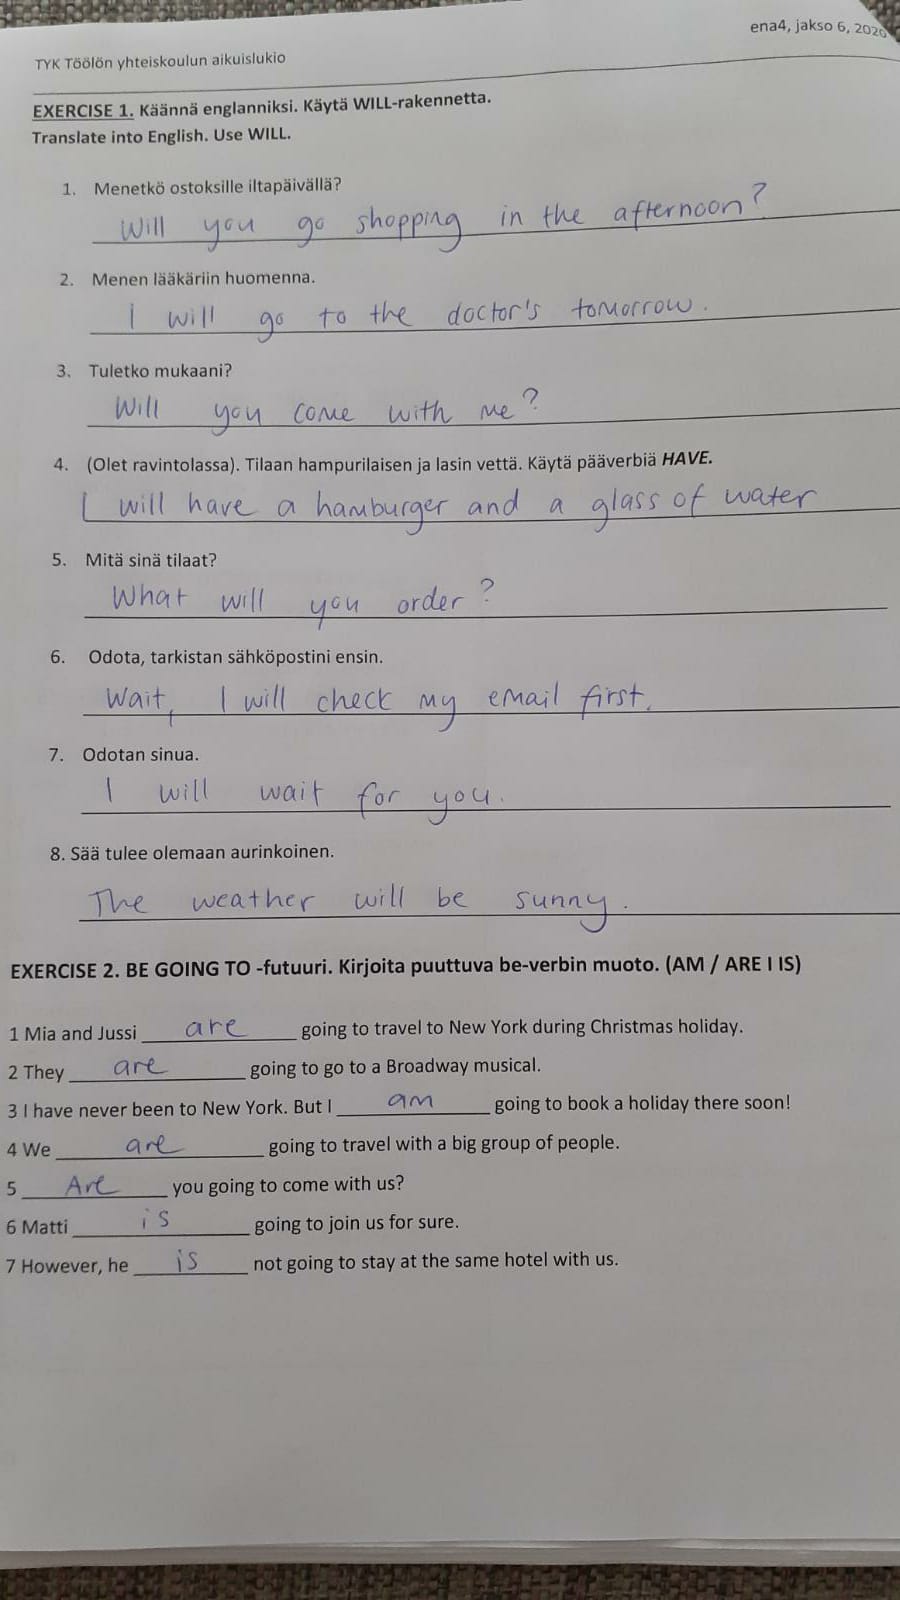 ena4, jakso 6, 2020
TYK Töölön yhteiskoulun aikuislukio
EXERCISE 1. Käännä englanniksi. Käytä WILL-rakennetta.
Translate into English. Use WILL.
1. Menetkö ostoksille iltapäivällä?
Will you go shopping in the afternoon?
2. Menen lääkäriin huomenna.
I will go to the doctor's tomorrow.
3. Tuletko mukaani?
Will you come with me?
4. (Olet ravintolassa). Tilaan hampurilaisen ja lasin vettä. Käytä pääverbiä HAVE.
I will have a hamburger and a glass of water
5. Mitä sinä tilaat?
What will you order?
6. Odota, tarkistan sähköpostini ensin.
Wait, I will check my email first.
7. Odotan sinua.
I will wait for you.
8. Sää tulee olemaan aurinkoinen.
The weather will be sunny.
EXERCISE 2. BE GOING TO -futuuri. Kirjoita puuttuva be-verbin muoto. (AM / ARE I IS)
1 Mia and Jussi are going to travel to New York during Christmas holiday.
2 They are going to go to a Broadway musical.
3 I have never been to New York. But I am going to book a holiday there soon!
4 We are going to travel with a big group of people.
5 Are you going to come with us?
6 Matti is going to join us for sure.
7 However, he is not going to stay at the same hotel with us.